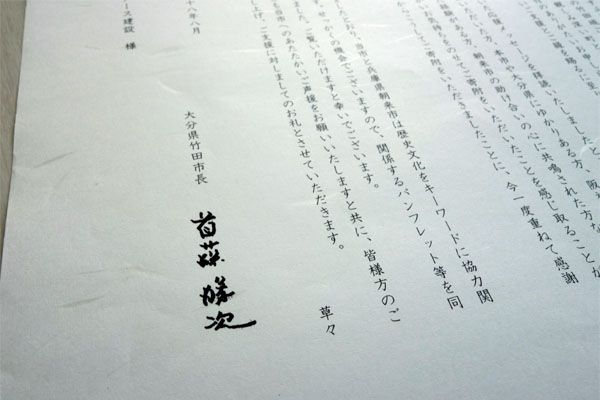 メッセージを拝読いたしますと、
本市や大分県にゆかりある方、阪
の助け合いの心に共鳴された方な
お気持ちをのせてご寄附をいただいたことを感じ取ることが
ご寄附をいただきましたことに、今一度重ねて感謝
しており、当市と兵庫県朝来市は歴史文化をキーワードに協力関
せっかくの機会でございますので、関係するパンフレット等を同
ました。ご覧いただけますと幸いでございます。
も当市へのあたたかいご声援をお願いいたしますと共に、皆様方のご
上げ、ご支援に対しましてのお礼とさせていただきます。
草々
十八年八月
大分県竹田市長 首藤勝次
ース建設 様